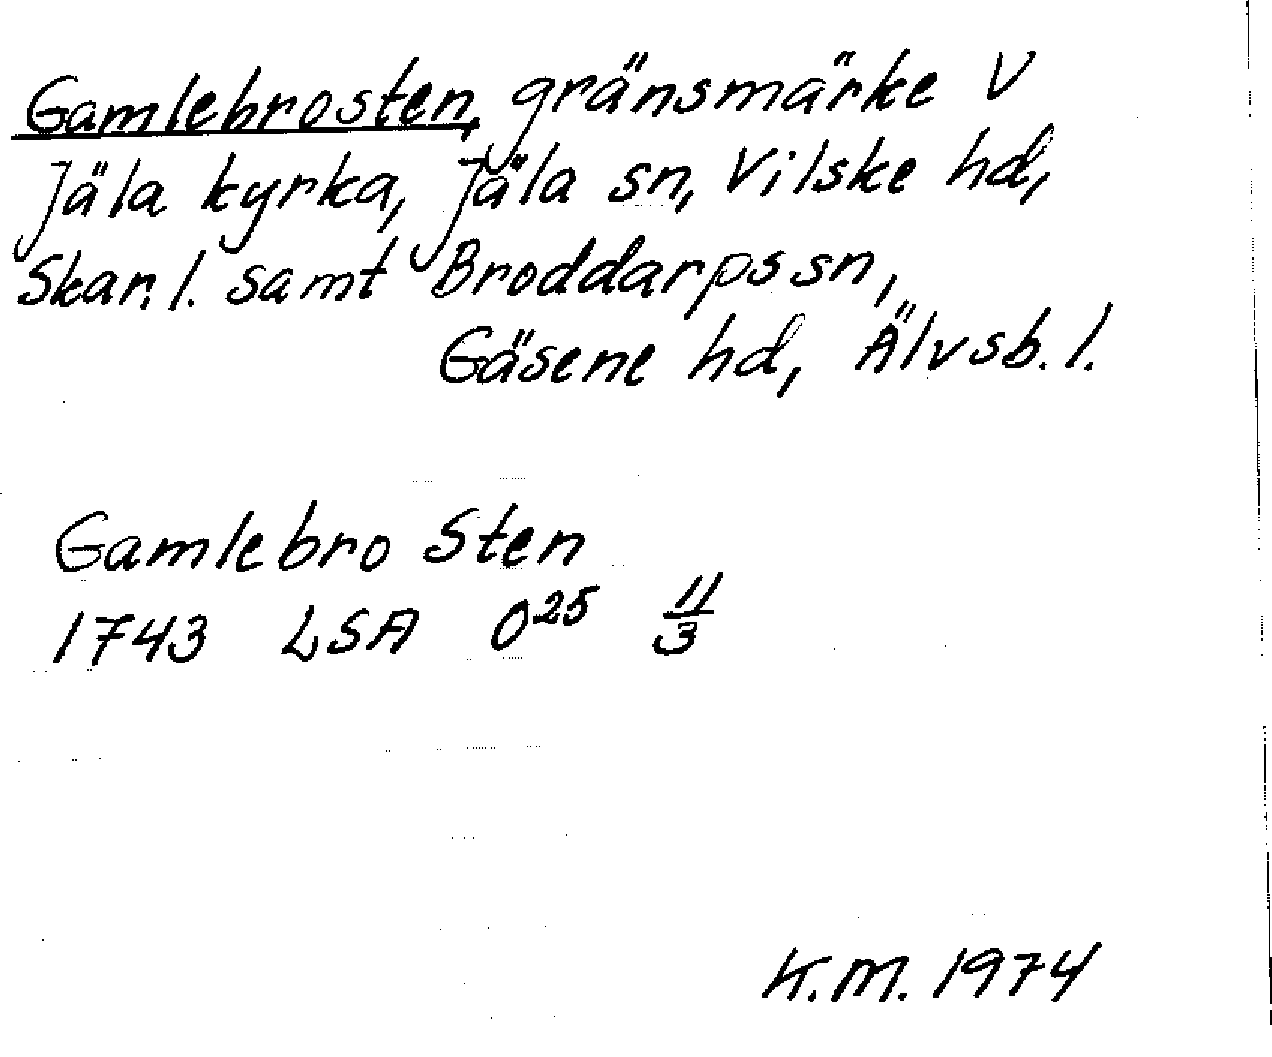 Gamlebrosten, gränsmärke V
Jäla kyrka, Jäla sn, Vilske hd,
Skar. l. samt Broddarps sn,
Gäsene hd, Älvsb. l.
Gamlebro Sten
1743 LSA O²⁵ 11/3
K.M. 1974